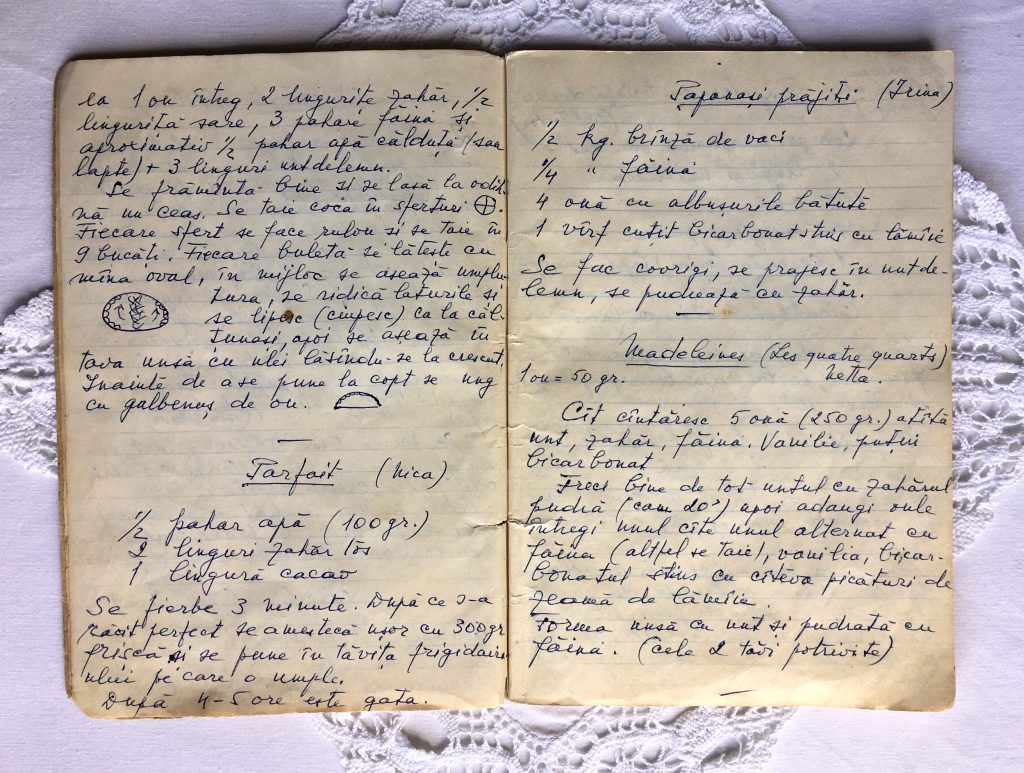 la 1 ou întreg, 2 lingurite zahăr, 1/2
lingurită sare, 3 pahare făină și
aproximativ 1/2 pahar apă călduță (sau
lapte) + 3 linguri untdelemn.
Se frământă bine si se lasă la odih
nă un ceas. Se taie coca în sferturi
Fiecare sfert se face rulou si se taie în
9 bucăti. Fiecare buletă se lăteste cu
mîna oval, în mijloc se asează umplu
tura, se ridică laturile si
se lipesc (ciupesc) ca la căl-
tunasi, apoi se asează în
tava unsă cu ulei lăsîndu-se la crescut,
Înainte de a se pune la copt se ung
cu gălbenuș de ou.
Parfait (Nica)
1/2 pahar apă (100 gr.)
2 linguri zahăr tos
1 lingură cacao
Se fierbe 3 minute. După ce s-a
răcit perfect se amestecă ușor cu 300 gr
frișcă și se pune în tăvița frigidairu
ului pe care o umple.
După 4-5 ore este gata.
Papanasi prăjiți (Irina)
1/2 kg. brînză de vaci
1/4 " făină
4 ouă cu albușurile bătute
1 vîrf cuțit bicarbonat stins cu lămîie
Se fac covrigi, se prajesc în untde-
lemn, se pudrează cu zahăr.
Madeleines (Les quatre quarts)
1 ou = 50 gr. Netta.
Cît cîntăresc 5 ouă (250 gr.) atîta
unt, zahăr, făină. Vanilie, puțin
bicarbonat
Freci bine de tot untul cu zahărul
pudră (cam 20') apoi adaugi oule
întregi unul cîte unul alternat cu
făina (altfel se taie), vanilia, bicar-
bonatul stins cu cîteva picături de
zeamă de lămîie.
Forma unsă cu unt si pudrată cu
făină. (cele 2 tăvi potrivite)